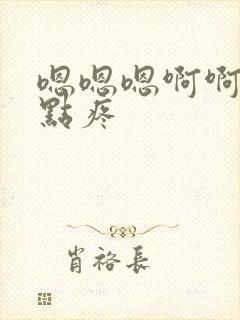 嗯嗯嗯啊啊
點疼
肖裕長